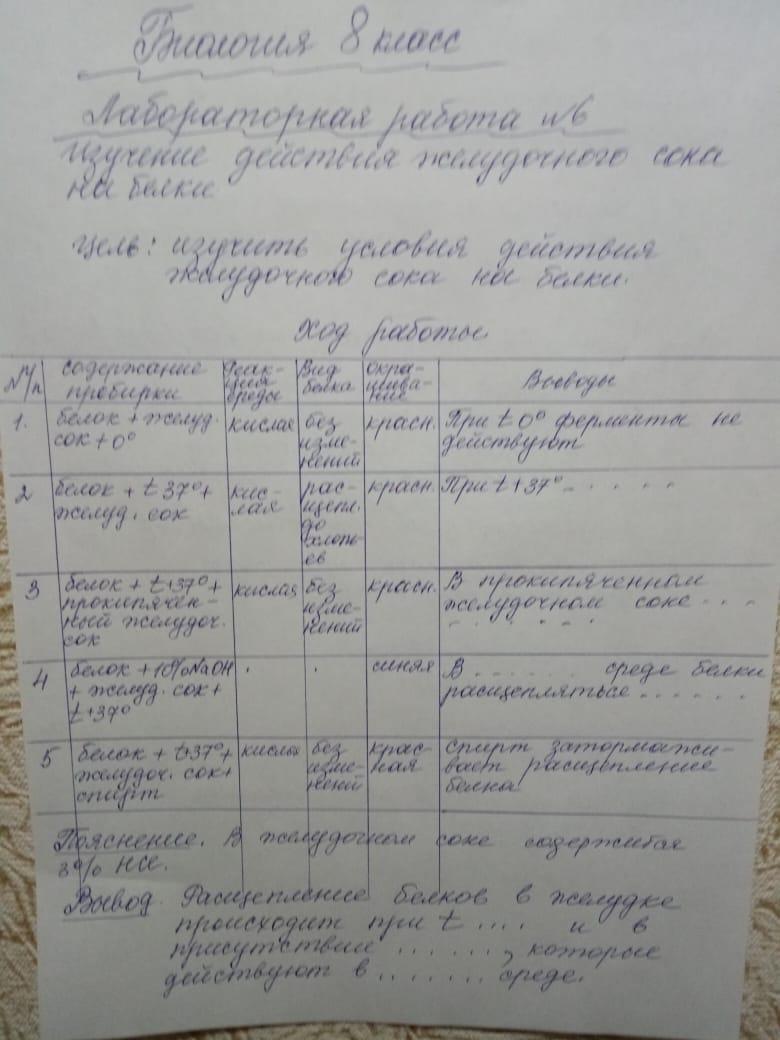 Биология 8 класс
Лабораторная работа №6
Изучение действия желудочного сока
на белки
Цель: изучить условия действия
желудочного сока на белки.
Ход работы
№ п/п | содержание пробирки | Реакция среды | Вид белка | окрашивание | Выводы
1. | белок + желуд. сок + 0° | кислая | без изменений | красн. | При t 0° ферменты не действуют
2 | белок + t 37° + желуд. сок | кислая | расщепл. до хлопьев | красн. | При t + 37° . . . . .
3 | белок + t+37° + прокипячённый желудоч. сок | кислая | без изменений | красн. | В прокипяченном желудочном соке . . . . . . . .
4 | белок + 10% NaOH + желуд. сок + t+37° | . | . | синяя | В . . . . . . среде белки расщепляться . . . . . .
5 | белок + t+37° + желудоч. сок + спирт | кислая | без изменений | красная | спирт затормаживает расщепление белка
Пояснение. В желудочном соке содержится
3% HCl.
Вывод. Расщепление белков в желудке
происходит при t .... и в
присутствие ......., которые
действуют в ....... среде.